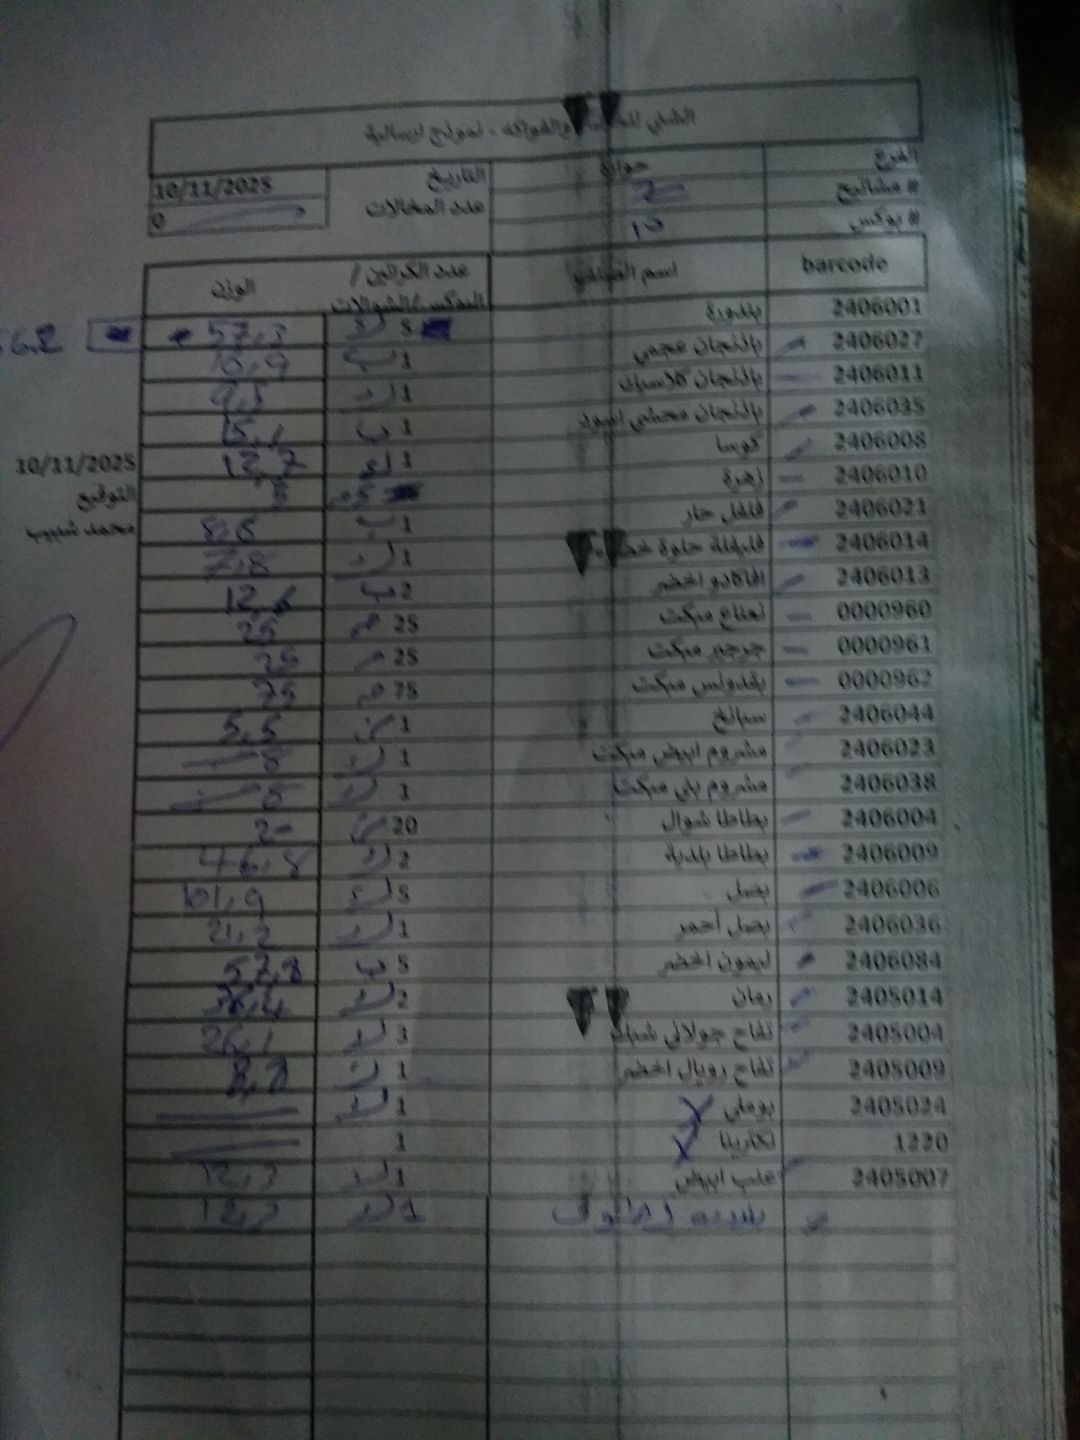 الشني للخضار والفواكه - نموذج ارسالية
الفرع حوارة التاريخ 10/11/2025
# مشاتيح 2 عدد المحالات 0
# بوكس 10
barcode اسم الصنف عدد الكراتين / البوكس/الشوالات الوزن
2406001 بندورة 5 57,3
2406027 باذنجان عجمي 1 10,9
2406011 باذنجان كلاسيك 1 9,5
2406035 باذنجان محشي اسود 1 15,1
2406008 كوسا 1 12,7
10/11/2025
2406010 زهرة 5
التوقيع
2406021 فلفل حار 1 8,6
محمد شبيب
2406014 فليفلة حلوة 1 7,8
2406013 افوكادو اخضر 2 12,6
0000960 نعناع مبكت 25 25
0000961 جرجير مبكت 25 25
0000962 بقدونس مبكت 75 75
2406044 سبانخ 1 5,5
2406023 مشروم ابيض مبكت 1 8
2406038 مشروم بني مبكت 1 8
2406004 بطاطا شوال 20 20
2406009 بطاطا بلدية 2 46,8
2406006 بصل 5 101,9
2406036 بصل احمر 1 21,2
2406084 ليمون اخضر 5 52,8
2405014 رمان 2 38,4
2405004 تفاح جولاني شبك 3 26,1
2405009 تفاح رويال اخضر 1 8,8
2405024 بوملي 1
1220 نكتارينا 1
2405007 عنب ابيض 1 12,3
1 12,7